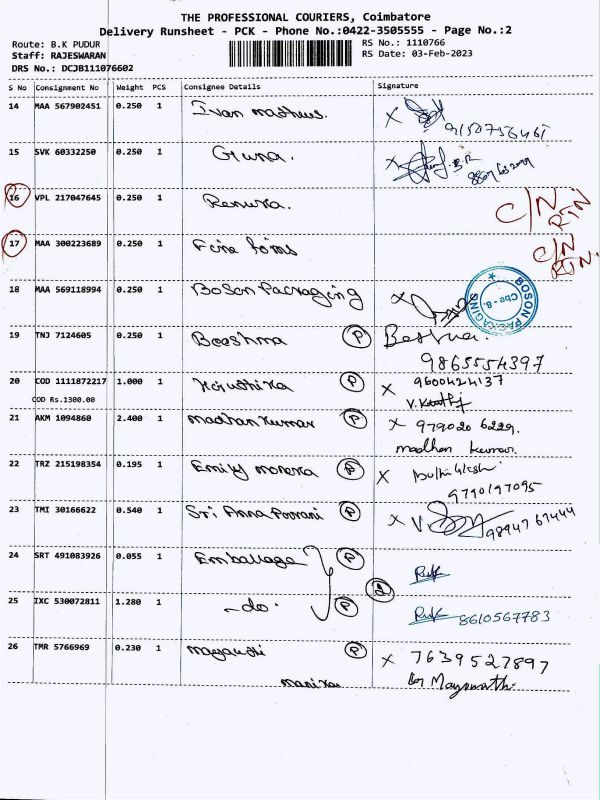 THE PROFESSIONAL COURIERS, Coimbatore
Delivery Runsheet - PCK - Phone No.:0422-3505555 - Page No.:2
Route: B.K PUDUR RS No.: 1110766
Staff: RAJESWARAN RS Date: 03-Feb-2023
DRS No.: DCJB111076602
S No Consignment No Weight PCS Consignee Details Signature
14 MAA 567902451 0.250 1 Ivan Mathews. X
15 SVK 60332250 0.250 1 Guna. X
16 VPL 217047645 0.250 1 Renuka. C/N RTN
17 MAA 300223689 0.250 1 Fine forms C/N RTN.
18 MAA 569118994 0.250 1 Boson Packaging X
BOSON PACKAGING Cbe - 8.
19 TNJ 7124605 0.250 1 Beeshma P
9865554397
20 COD 1111872217 1.000 1 P X 9600424137
COD Rs.1300.00
21 AKM 1094860 2.400 1 Madhan Kumar P X 979020 6229.
madhan kumar.
22 TRZ 215198354 0.195 1 Emily P X
9790197095
23 TMI 30166622 0.540 1 Sri Anna Poorani P X
24 SRT 491083926 0.055 1 Emballage P
2
25 IXC 530072811 1.280 1 -do- P 8610567783
26 TMR 5766969 0.230 1 P X 7639527897